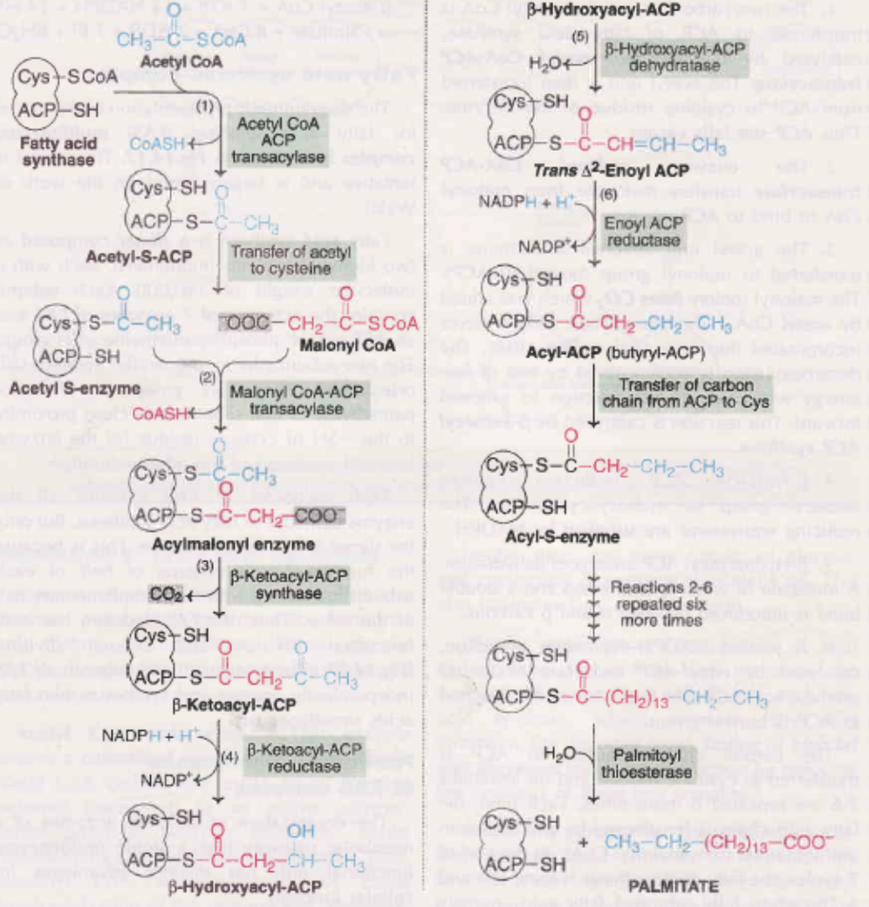 O
CH3–C–SCoA
Acetyl CoA
Cys–SCoA
ACP–SH
Fatty acid
synthase
(1)
CoASH
Acetyl CoA
ACP
transacylase
Cys–SH
O
ACP–S–C–CH3
Acetyl-S-ACP
Transfer of acetyl
to cysteine
O
Cys–S–C–CH3
ACP–SH
Acetyl S-enzyme
O
OOC–CH2–C–SCoA
Malonyl CoA
(2)
CoASH
Malonyl CoA-ACP
transacylase
O
Cys–S–C–CH3
O
ACP–S–C–CH2–COO-
Acylmalonyl enzyme
(3)
CO2
β-Ketoacyl-ACP
synthase
Cys–SH
O O
ACP–S–C–CH2–C–CH3
β-Ketoacyl-ACP
NADPH + H+
(4)
NADP+
β-Ketoacyl-ACP
reductase
Cys–SH
O OH
ACP–S–C–CH2–CH–CH3
β-Hydroxyacyl-ACP
β-Hydroxyacyl-ACP
(5)
H2O
β-Hydroxyacyl-ACP
dehydratase
Cys–SH
O
ACP–S–C–CH=CH–CH3
Trans Δ2-Enoyl ACP
NADPH + H+
(6)
NADP+
Enoyl ACP
reductase
Cys–SH
O
ACP–S–C–CH2–CH2–CH3
Acyl-ACP (butyryl-ACP)
Transfer of carbon
chain from ACP to Cys
O
Cys–S–C–CH2–CH2–CH3
ACP–SH
Acyl-S-enzyme
Reactions 2-6
repeated six
more times
Cys–SH
O
ACP–S–C–(CH2)13–CH2–CH3
H2O
Palmitoyl
thioesterase
Cys–SH
ACP–SH
+ CH3–CH2–(CH2)13–COO-
PALMITATE